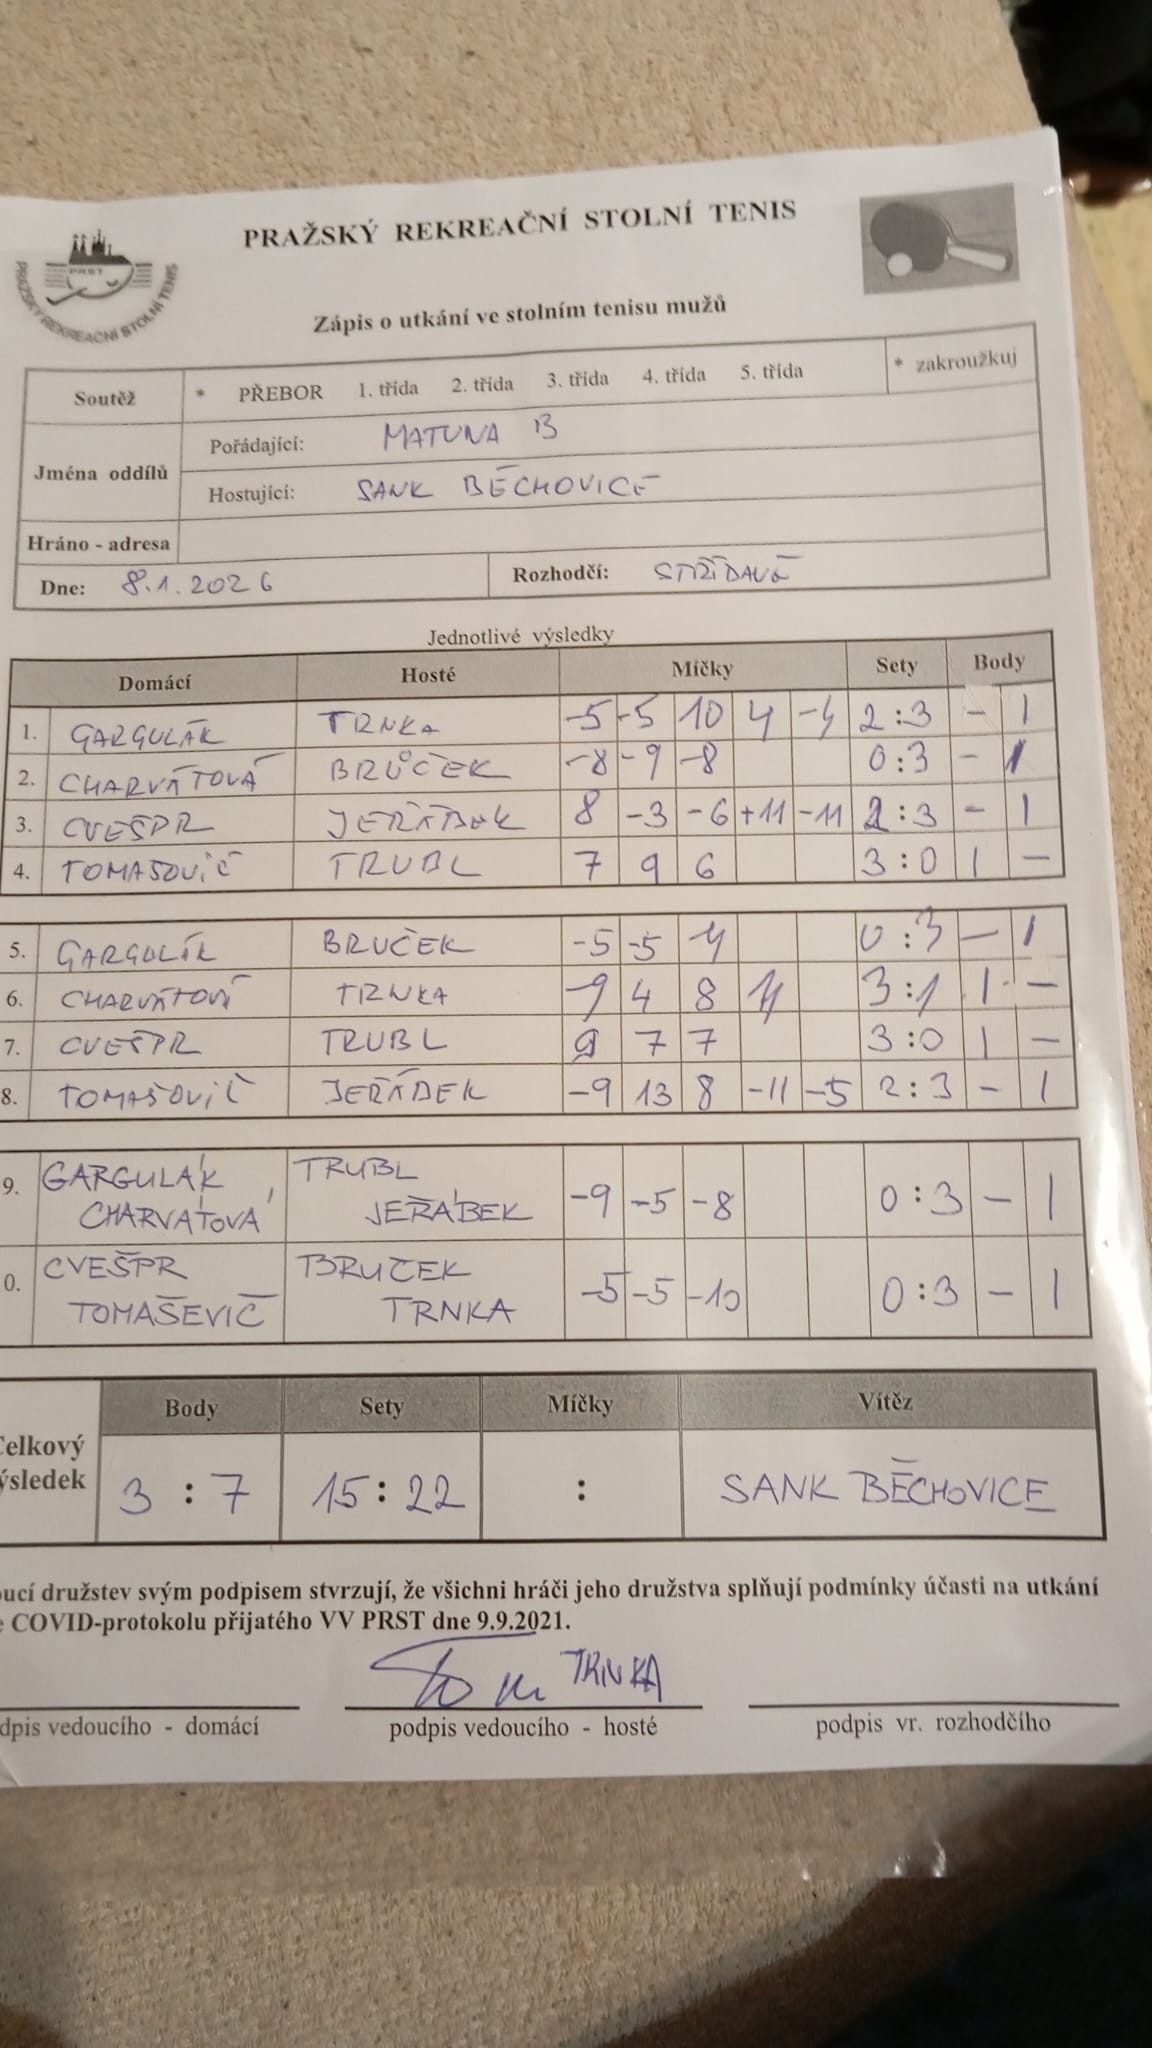 PRAŽSKÝ REKREAČNÍ STOLNÍ TENIS
PRST
PRAŽSKÝ REKREAČNÍ STOLNÍ TENIS
Zápis o utkání ve stolním tenisu mužů
Soutěž * PŘEBOR 1. třída 2. třída 3. třída 4. třída 5. třída * zakroužkuj
Jména oddílů
Pořádající: MATUNA B
Hostující: SANK BĚCHOVICE
Hráno - adresa
Dne: 8.1.2026 Rozhodčí: STŘÍDAVĚ
Jednotlivé výsledky
Domácí Hosté Míčky Sety Body
1. GARGULÁK TRNKA -5 -5 10 4 -4 2:3 - 1
2. CHARVÁTOVÁ BRŮČEK -8 -9 -8 0:3 - 1
3. CVEŠPR JEŘÁBEK 8 -3 -6 +11 -11 2:3 - 1
4. TOMAŠOVIČ TRUBL 7 9 6 3:0 1 -
5. GARGULÁK BRUČEK -5 -5 -4 0:3 - 1
6. CHARVÁTOVÁ TRNKA -9 4 8 4 3:1 1 -
7. CVEŠPR TRUBL 9 7 7 3:0 1 -
8. TOMAŠOVIČ JEŘÁBEK -9 13 8 -11 -5 2:3 - 1
9. GARGULÁK, TRUBL -9 -5 -8 0:3 - 1
CHARVÁTOVÁ JEŘÁBEK
0. CVEŠPR BRUČEK -5 -5 -10 0:3 - 1
TOMAŠEVIČ TRNKA
Body Sety Míčky Vítěz
Celkový
ýsledek 3 : 7 15 : 22 : SANK BĚCHOVICE
oucí družstev svým podpisem stvrzují, že všichni hráči jeho družstva splňují podmínky účasti na utkání
e COVID-protokolu přijatého VV PRST dne 9.9.2021.
TRNKA
dpis vedoucího - domácí podpis vedoucího - hosté podpis vr. rozhodčího